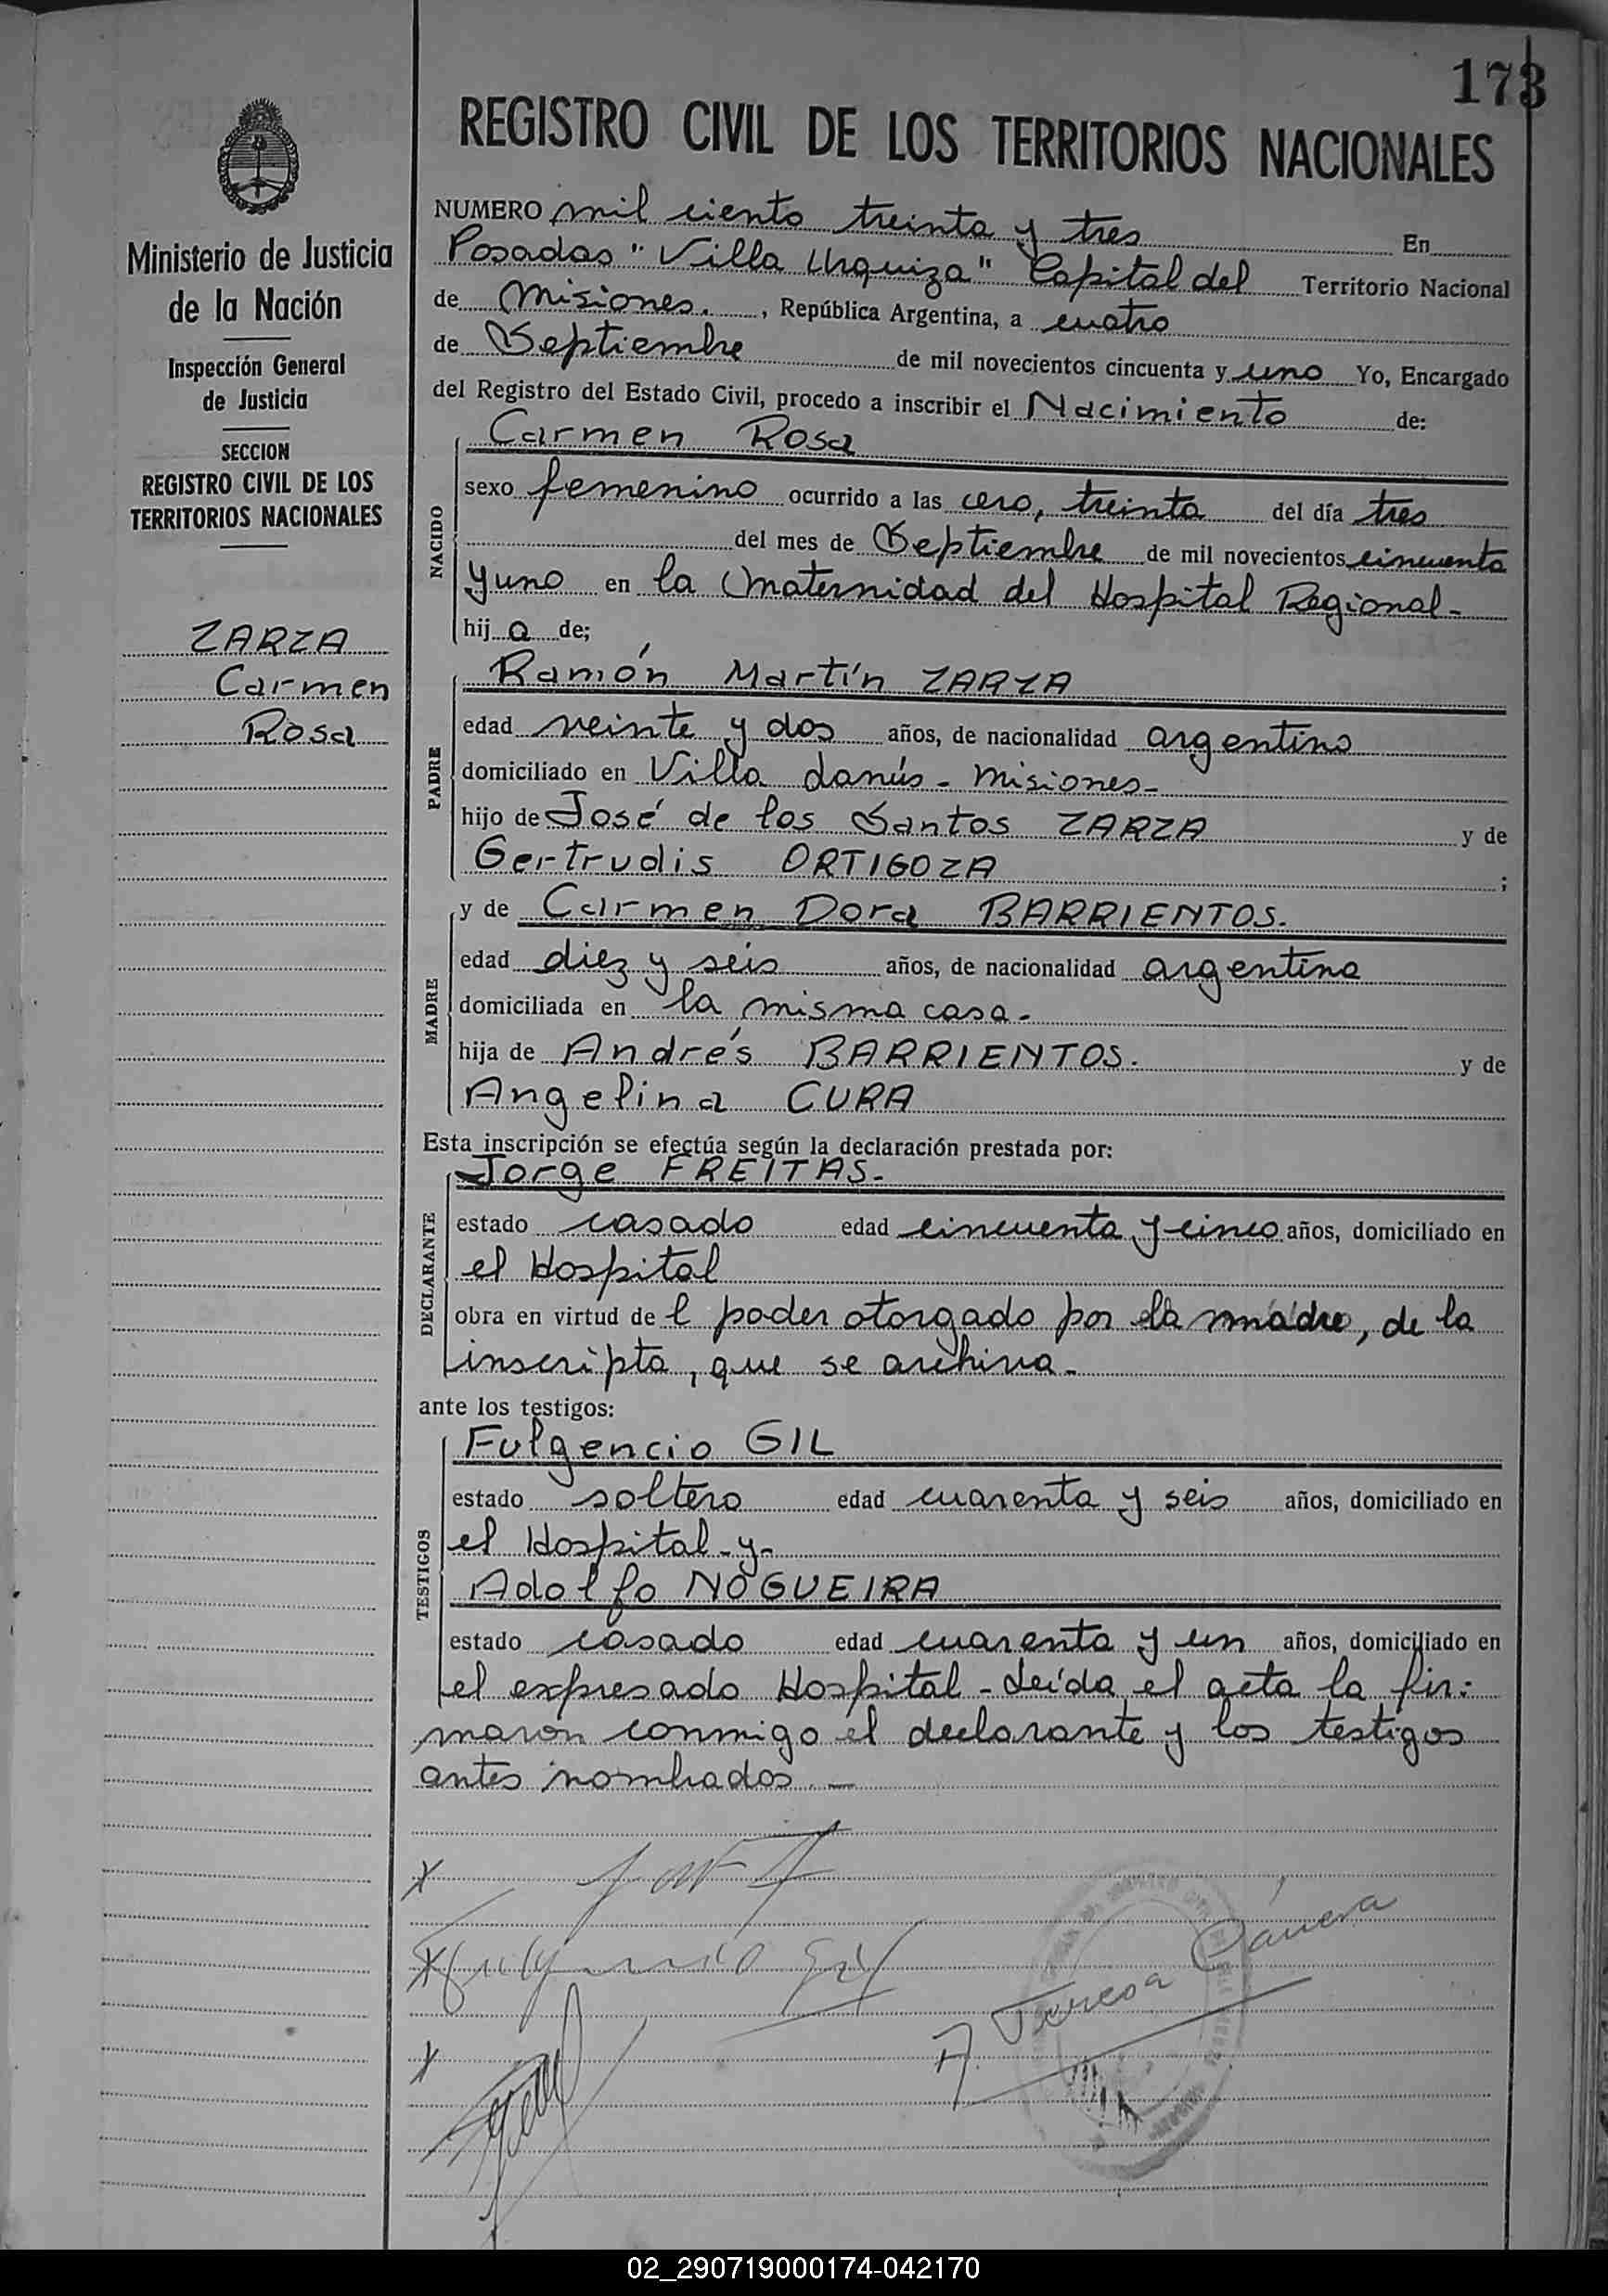 173
REGISTRO CIVIL DE LOS TERRITORIOS NACIONALES
Ministerio de Justicia
de la Nación
Inspección General
de Justicia
SECCION
REGISTRO CIVIL DE LOS
TERRITORIOS NACIONALES
ZARZA
Carmen
Rosa
NUMERO mil ciento treinta y tres En
Posadas "Villa Urquiza" Capital del Territorio Nacional
de Misiones. , República Argentina, a cuatro
de Septiembre de mil novecientos cincuenta y uno Yo, Encargado
del Registro del Estado Civil, procedo a inscribir el Nacimiento de:
NACIDO
Carmen Rosa
sexo femenino ocurrido a las cero, treinta del día tres
del mes de Septiembre de mil novecientos cincuenta
y uno en la Maternidad del Hospital Regional-
hij a de;
PADRE
Ramón Martín ZARZA
edad veinte y dos años, de nacionalidad argentino
domiciliado en Villa Lanús - Misiones-
hijo de José de los Santos ZARZA y de
Gertrudis ORTIGOZA ;
MADRE
y de Carmen Dora BARRIENTOS.
edad diez y seis años, de nacionalidad argentina
domiciliada en la misma casa-
hija de Andrés BARRIENTOS. y de
Angelina CURA
Esta inscripción se efectúa según la declaración prestada por:
DECLARANTE
Jorge FREITAS-
estado casado edad cincuenta y cinco años, domiciliado en
el Hospital
obra en virtud de l poder otorgado por la madre, de la
inscripta, que se archiva-
ante los testigos:
TESTIGOS
Fulgencio GIL
estado soltero edad cuarenta y seis años, domiciliado en
el Hospital-y-
Adolfo NOGUEIRA
estado casado edad cuarenta y un años, domiciliado en
el expresado Hospital - Leída el acta la fir:
maron conmigo el declarante y los testigos
antes nombrados -
Fulgencio Gil
A. Teresa
02_290719000174-042170